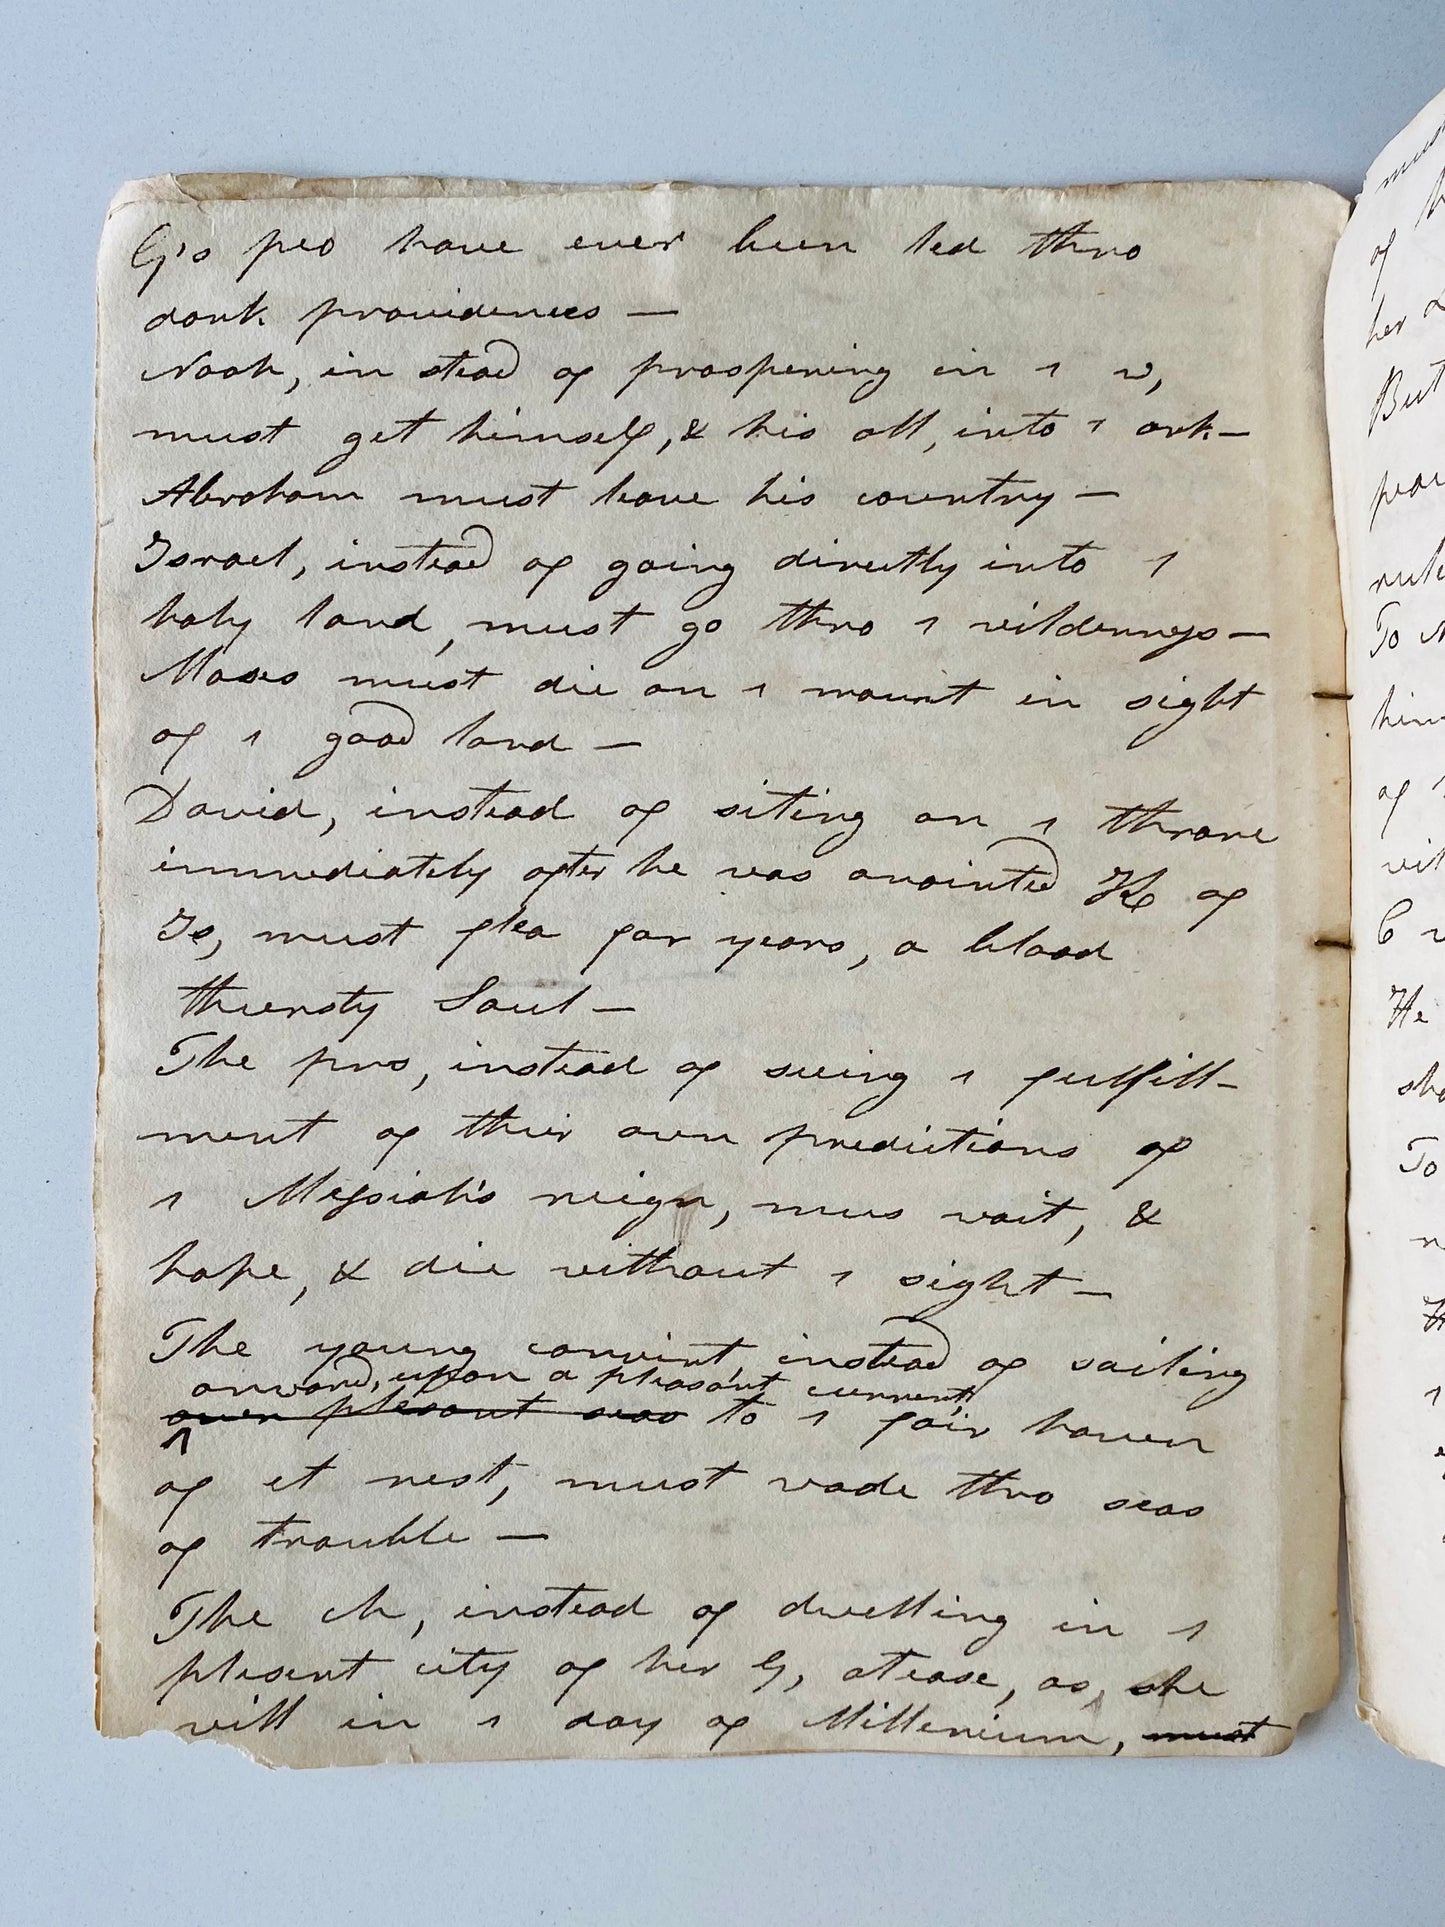 G's peo have ever been led thro
dark providences —
Noah, in stead of prospering in 1 w,
must get himself, & his all, into 1 ark —
Abraham must leave his country —
Israel, instead of going directly into 1
holy land, must go thro 1 wilderness —
Moses must die on 1 mount in sight
of 1 good land —
David, instead of siting on 1 throne
immediately after he was anointed K of
Is, must flea for years, a blood
thirsty Saul —
The pro, instead of seeing 1 fulfill-
ment of their own predictions of
1 Messiah's reign, mus wait, &
hope, & die without 1 sight —
The young convert, instead of sailing
onward, upon a pleasant current,
over plesant seas to 1 fair haven
of et rest, must wade thro seas
of trouble —
The ch, instead of dwelling in 1
plesent city of her G, at ease, as, she
will in 1 day of Millenium, must
of
her
But
To
him
of
C
He
To